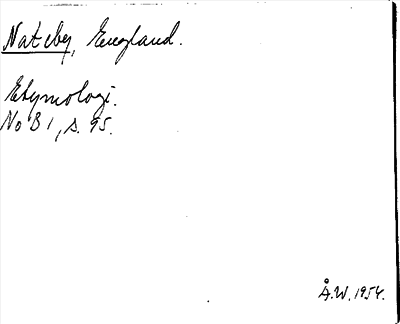 Nateby, England.
Etymologi.
NoB 1, s. 95.
Å.W. 1954.